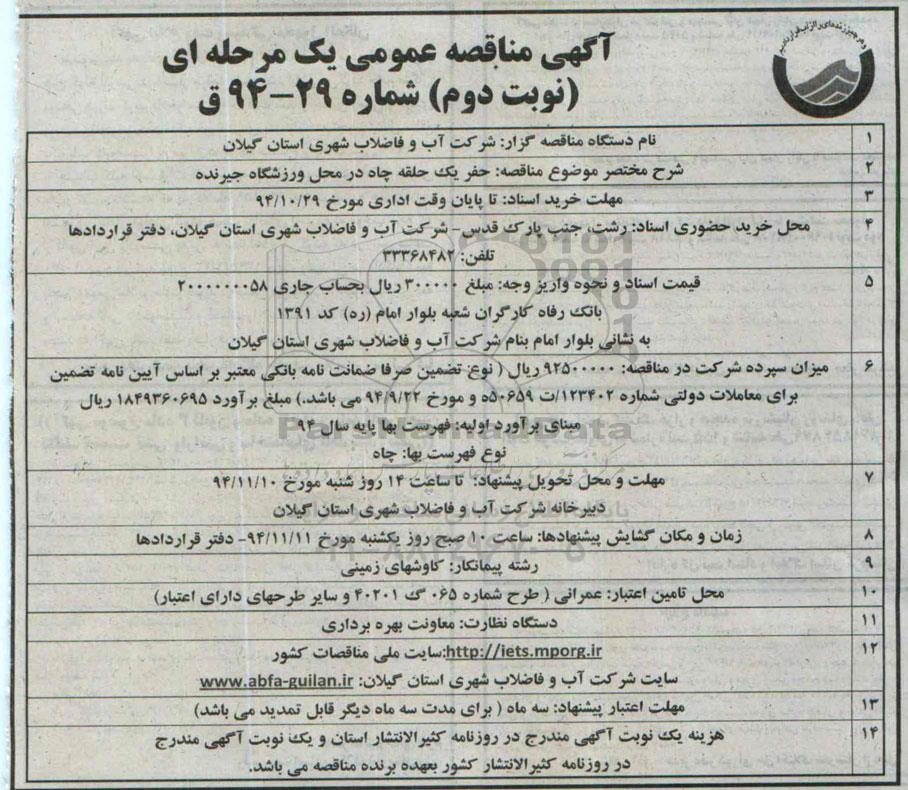 و هر چیز زنده ای را از آب قرار دادیم
آگهی مناقصه عمومی یک مرحله ای
(نوبت دوم) شماره ۲۹-۹۴ ق
۱ نام دستگاه مناقصه گزار: شرکت آب و فاضلاب شهری استان گیلان
۲ شرح مختصر موضوع مناقصه: حفر یک حلقه چاه در محل ورزشگاه جیرنده
۳ مهلت خرید اسناد: تا پایان وقت اداری مورخ ۹۴/۱۰/۲۹
۴ محل خرید حضوری اسناد: رشت، جنب پارک قدس- شرکت آب و فاضلاب شهری استان گیلان، دفتر قراردادها
تلفن: ۳۳۳۶۸۴۸۲
۵ قیمت اسناد و نحوه واریز وجه: مبلغ ۳۰۰۰۰۰ ریال بحساب جاری ۲۰۰۰۰۰۰۰۵۸
بانک رفاه کارگران شعبه بلوار امام (ره) کد ۱۳۹۱
به نشانی بلوار امام بنام شرکت آب و فاضلاب شهری استان گیلان
۶ میزان سپرده شرکت در مناقصه: ۹۲۵۰۰۰۰۰ ریال ( نوع تضمین صرفا ضمانت نامه بانکی معتبر بر اساس آیین نامه تضمین
برای معاملات دولتی شماره ۱۲۳۴۰۲/ت ۵۰۶۵۹ه و مورخ ۹۴/۹/۲۲ می باشد.) مبلغ برآورد ۱۸۴۹۳۶۰۶۹۵ ریال
مبنای برآورد اولیه: فهرست بها پایه سال ۹۴
نوع فهرست بها: چاه
۷ مهلت و محل تحویل پیشنهاد: تا ساعت ۱۴ روز شنبه مورخ ۹۴/۱۱/۱۰
دبیرخانه شرکت آب و فاضلاب شهری استان گیلان
۸ زمان و مکان گشایش پیشنهادها: ساعت ۱۰ صبح روز یکشنبه مورخ ۹۴/۱۱/۱۱- دفتر قراردادها
۹ رشته پیمانکار: کاوشهای زمینی
۱۰ محل تامین اعتبار: عمرانی ( طرح شماره ۰۶۵ گ ۴۰۲۰۱ و سایر طرحهای دارای اعتبار)
۱۱ دستگاه نظارت: معاونت بهره برداری
۱۲ http://iets.mporg.ir:سایت ملی مناقصات کشور
سایت شرکت آب و فاضلاب شهری استان گیلان: www.abfa-guilan.ir
۱۳ مهلت اعتبار پیشنهاد: سه ماه ( برای مدت سه ماه دیگر قابل تمدید می باشد)
۱۴ هزینه یک نوبت آگهی مندرج در روزنامه کثیرالانتشار استان و یک نوبت آگهی مندرج
در روزنامه کثیرالانتشار کشور بعهده برنده مناقصه می باشد.
ParsNamadData